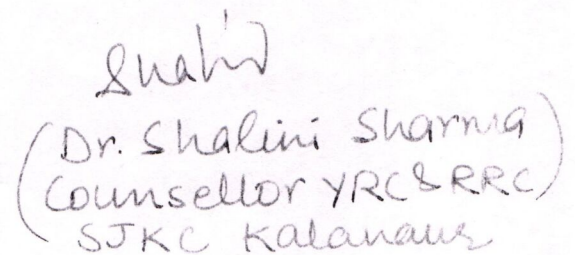 Shalini
(Dr. Shalini Sharma
Counsellor YRC & RRC)
SJKC Kalanaur